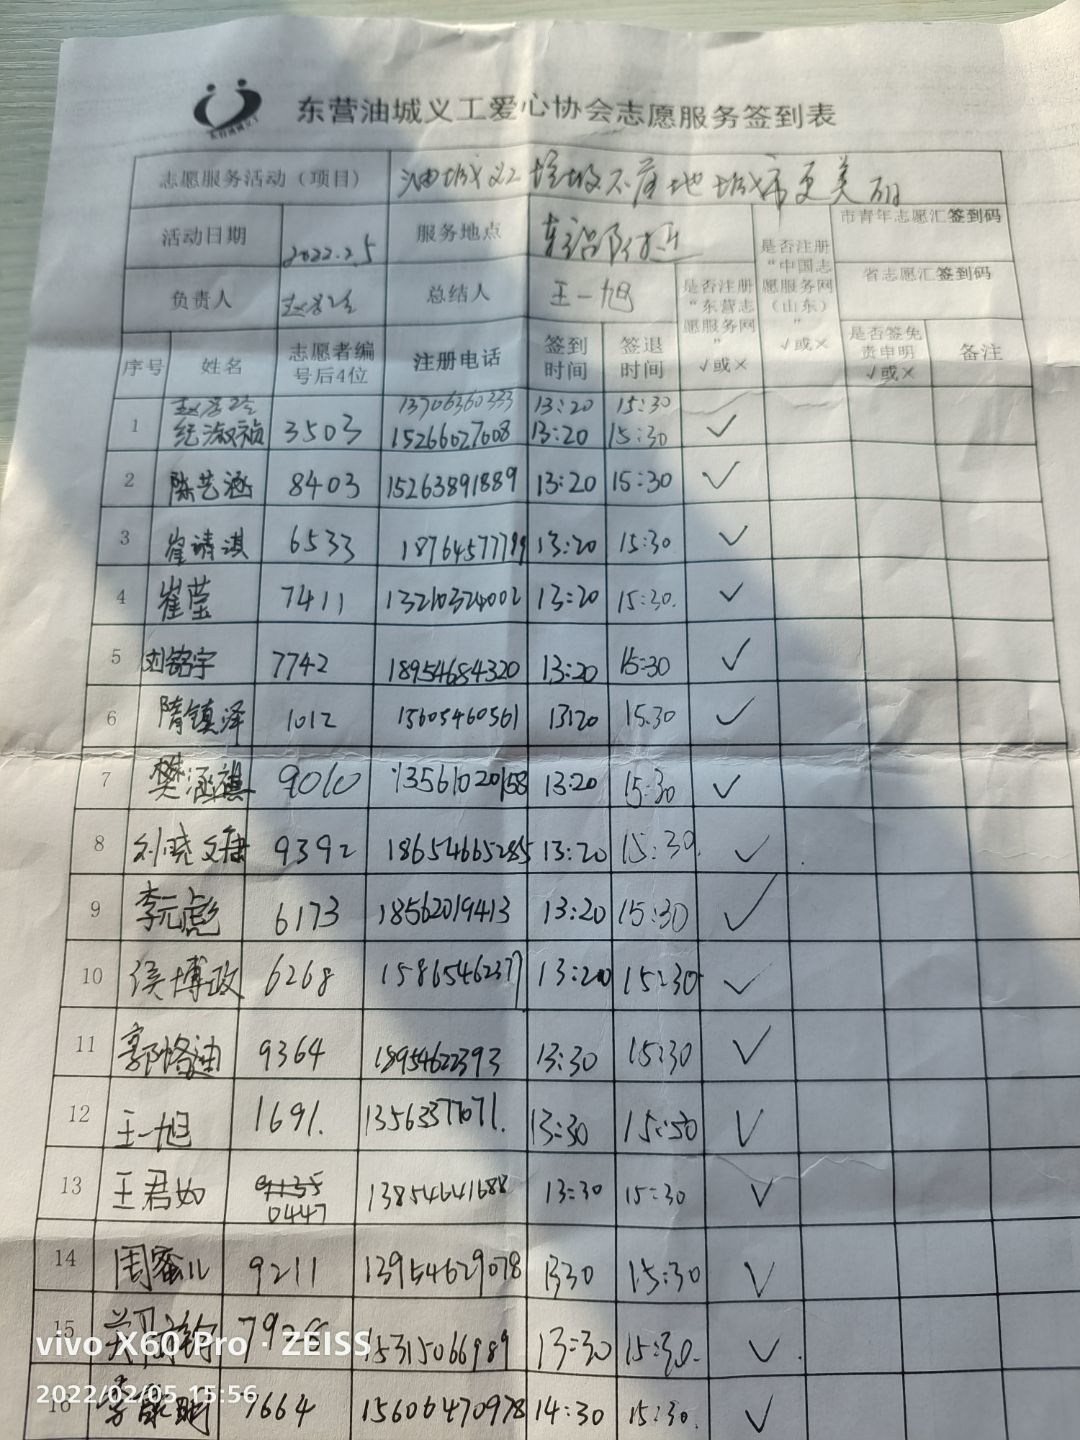 东营油城义工爱心协会志愿服务签到表
志愿服务活动（项目） 油城义工垃圾不落地城市更美丽
活动日期 2022.2.5 服务地点 是否注册“中国志愿服务网（山东）” √或× 市青年志愿汇签到码
负责人 总结人 王一旭 是否注册“东营志愿服务网” √或× 省志愿汇签到码
序号 姓名 志愿者编号后4位 注册电话 签到时间 签退时间 是否签免责申明 √或× 备注
13706360333 13:20 15:30
1 纪淑祯 3503 15266027008 13:20 15:30 ✓
2 陈艺涵 8403 15263891889 13:20 15:30 ✓
3 崔靖淇 6533 18764577799 13:20 15:30 ✓
4 崔莹 7411 13210324002 13:20 15:30. ✓
5 刘铭宇 7742 18954684320 13:20 15:30 ✓
6 隋镇泽 1012 15605460561 13:20 15.30 ✓
7 樊涵祺 9010 13561020158 13:20 15:30 ✓
8 刘晓文康 9392 18654665285 13:20 15:30. ✓
9 李元彪 6173 18562019413 13:20 15:30 ✓
10 侯博政 6268 15865462377 13:20 15:30 ✓
11 郭恪迪 9364 18954622393 13:30 15:30 ✓
12 王一旭 1691. 13563377071. 13:30 15:30 ✓
13 王君如 0447 13854641688 13:30 15:30 ✓
14 周蜜儿 9211 13954629078 1330 15:30 ✓
15 15315066989 13:30 15:30. ✓
16 7664 15606470978 14:30 15:30. ✓
vivo X60 Pro · ZEISS
2022/02/05 15:56